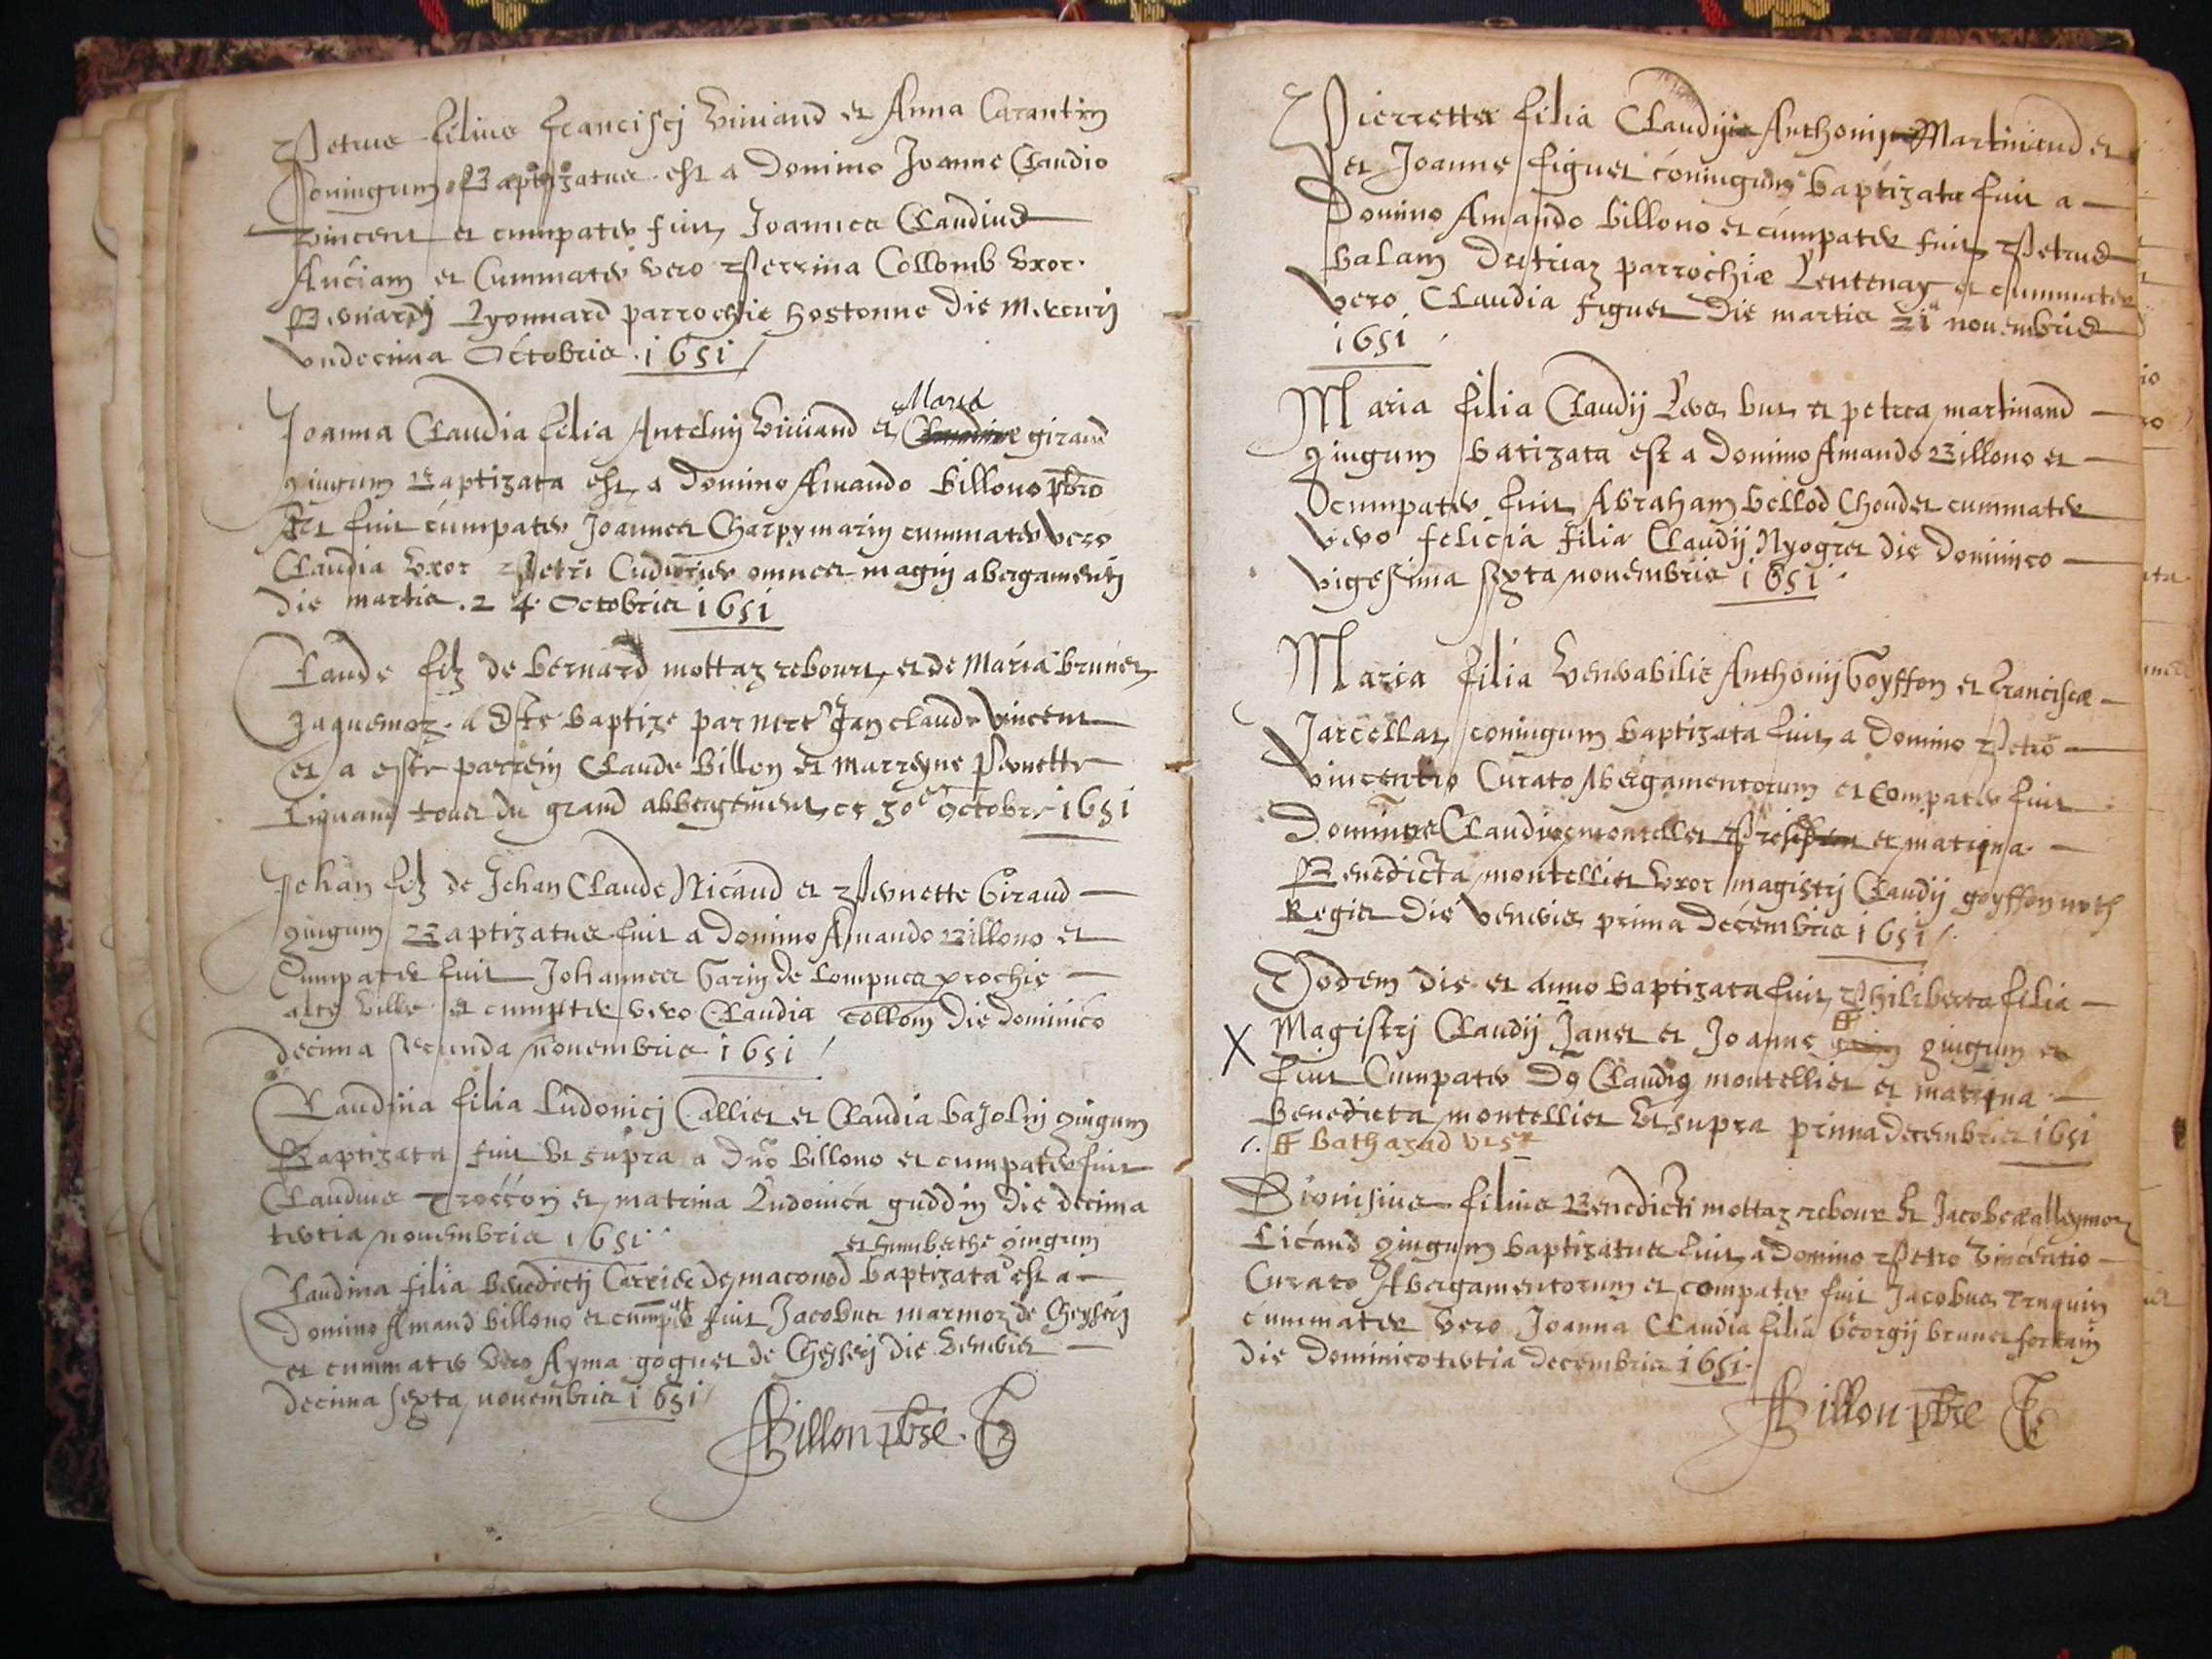 Petrus filius Francisci Viviand et Anna Carantin
Coniugum Baptizatus est a Domino Joanne Claudio
Vincent et cumpater fuit Joannes Claudius
Anciam et Cummater vero Perrina Collomb uxor
Bernardj Lyonnard parrochie hostonne die Mercurij
undecima Octobris 1651
Joanna Claudia filia Antelmij Viviand et Maria giraud
giugum Baptizata est a Domino Amando Billono pbro
Et fuit cumpater Joannes Charpy marin cummater vero
Claudia Uxor Petri omnes magnj abergamentj
die martis 24 Octobris 1651
Claude filz de bernard mottaz rebourt et de Maria brunet
Jaquemoz a este baptize par mere Jan claude Vincent
et a este parrein Claude billon et marreyne Pernette
Liquand tous du grand abbergement ce 30e Octobre 1651
Jehan filz de Jehan Claude Nicaud et Pernette Giraud
giugum Baptizatus fuit a domino Amando Billono et
Cumpater fuit Johannes Garin de Lompnes prochie
alte ville et cumpter vero Claudia Collom die dominico
decima secunda novembris 1651
Claudina filia Ludovicj Callier et Claudia bajolin giugum
Baptizata fuit ut supra a Dno billono et cumpater fuit
Claudius Troccon et matrina Ludovica guddin die decima
tertia novembris 1651
et humberthe giugum
Claudina filia benedictj Carrier de maconod baptizata est a
Domino Amand billono et cumpater fuit Jacobus marmoz de Cheysserj
et cummater vero Ayma goguet de Cheyserj die veneris
decima sexta novembris 1651
Billon pbre
Pierretta filia Claudij Anthonij Martinand et
et Joanne figuet coniugum baptizata fuit a
Domino Amando billono et cumpater fuit Petrus
balam destriaz parrochiæ Lentenay et cummater
vero Claudia figuet die martis 21a novembris
1651
Maria filia Claudij but et petrea martinand
giugum batizata est a domino Amando Billono et
Ocumpater fuit Abraham bollod Choudet cummater
vero felicia filia Claudij Nyogret die dominico
vigesima sexta novembris 1651
Maria filia Venerabilis Anthonij Goyffon et Franciscæ
Jarcellat coniugum baptizata fuit a domino Petro
Vincentio Curato Abergamentorum et compater fuit
Dominus Claudius montellier et matrina
Benedicta montellier uxor magistrj Claudij goyffon noth
Regis die veneris prima decembris 1651
Eodem die et anno baptizata fuit Philiberta filia
X Magistrj Claudij Janet et Joanne ff giugum et
fuit Cumpater Dq Claudiq montellier et matrina
Benedicta montellier ut supra prima decembris 1651
ff bathazad
Dionisius filius Benedicti mottaz rebour et Jacobeæ alleymoz
Licand giugum baptizatus fuit a domino Petro Vincentio
Curato Abergamentorum et compater fuit Jacobus Truquin
cummater vero Joanna Claudia filia Georgij brunet forrain
die dominico tertia decembris 1651
Billon pbre